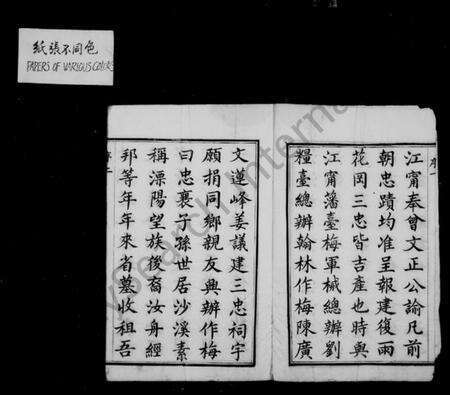 紙張不同色
PAPERS OF VARIOUS COLORS
序一
江甯奉曾文正公諭凡前
朝忠蹟均准呈報建復雨
花岡三忠皆吉產也時與
江甯藩臺梅軍械總辦劉
糧臺總辦翰林作梅陳廣
文蓮峰姜議建三忠祠宇
願捐同鄉親友興辦作梅
曰忠襄子孫世居沙溪素
稱溧陽望族後裔汝舟經
邦等年年來省墓收租吾
序二
My China Roots